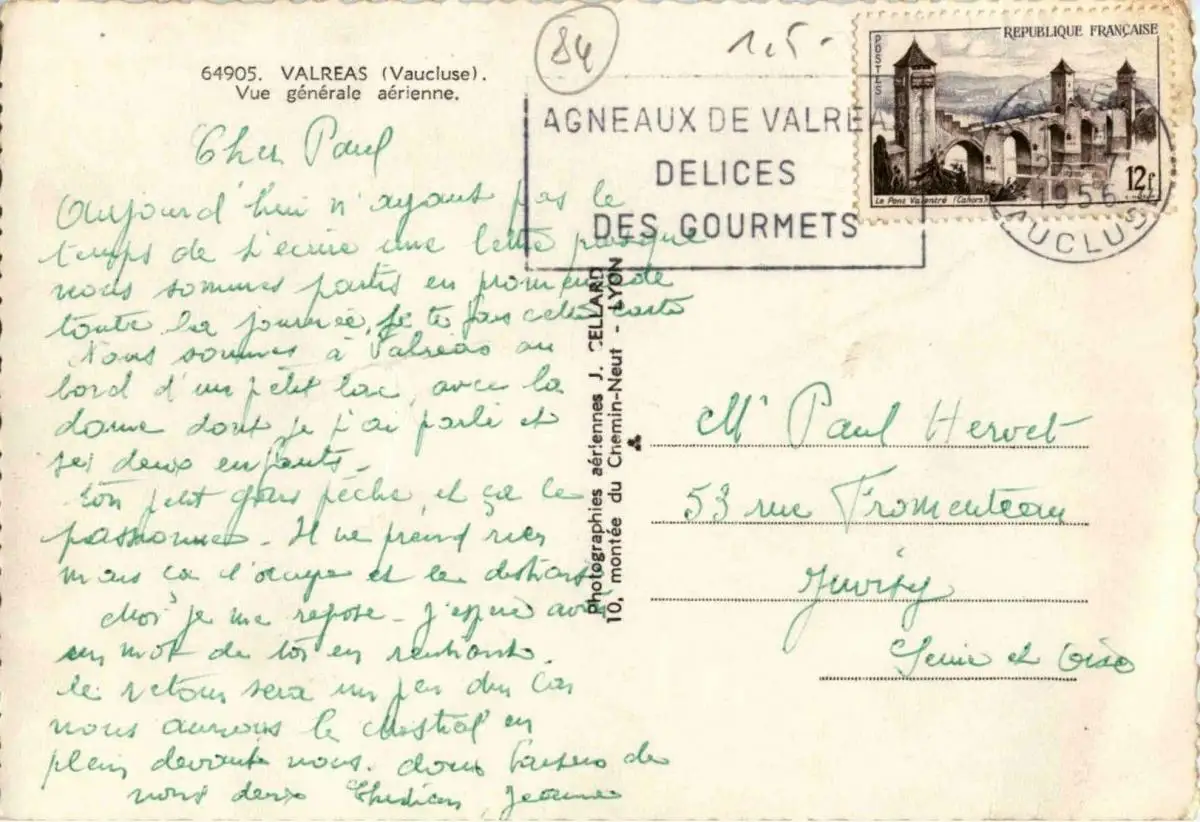 64905. VALREAS (Vaucluse).
Vue générale aérienne.
84
1,5-
AGNEAUX DE VALREA
DELICES
DES GOURMETS
POSTES
REPUBLIQUE FRANÇAISE
12f
Le Pont Valentré (Cahors)
1956
VAUCLUSE
Cher Paul
Aujourd'hui n'ayant pas le
temps de t'écrire une lettre puisque
nous sommes partis en promenade
toute la journée, je te fais cette carte
Nous sommes à Valréas au
bord d'un petit lac, avec la
dame dont je t'ai parlé et
ses deux enfants.
Ton petit gars pêche, et ça le
passionne. Il ne prend rien
mais ça l'occupe et le distrait
Moi je me repose. J'espère avoir
un mot de toi en rentrant.
Le retour sera un peu dur car
nous aurons le mistral en
plein devant nous. doux baisers de
nous deux Christian, Jeanne
Photographies aériennes J. CELLARD
10, montée du Chemin-Neuf - LYON
Mr Paul Hervet
53 rue Fromenteau
Juvisy
Seine et Oise